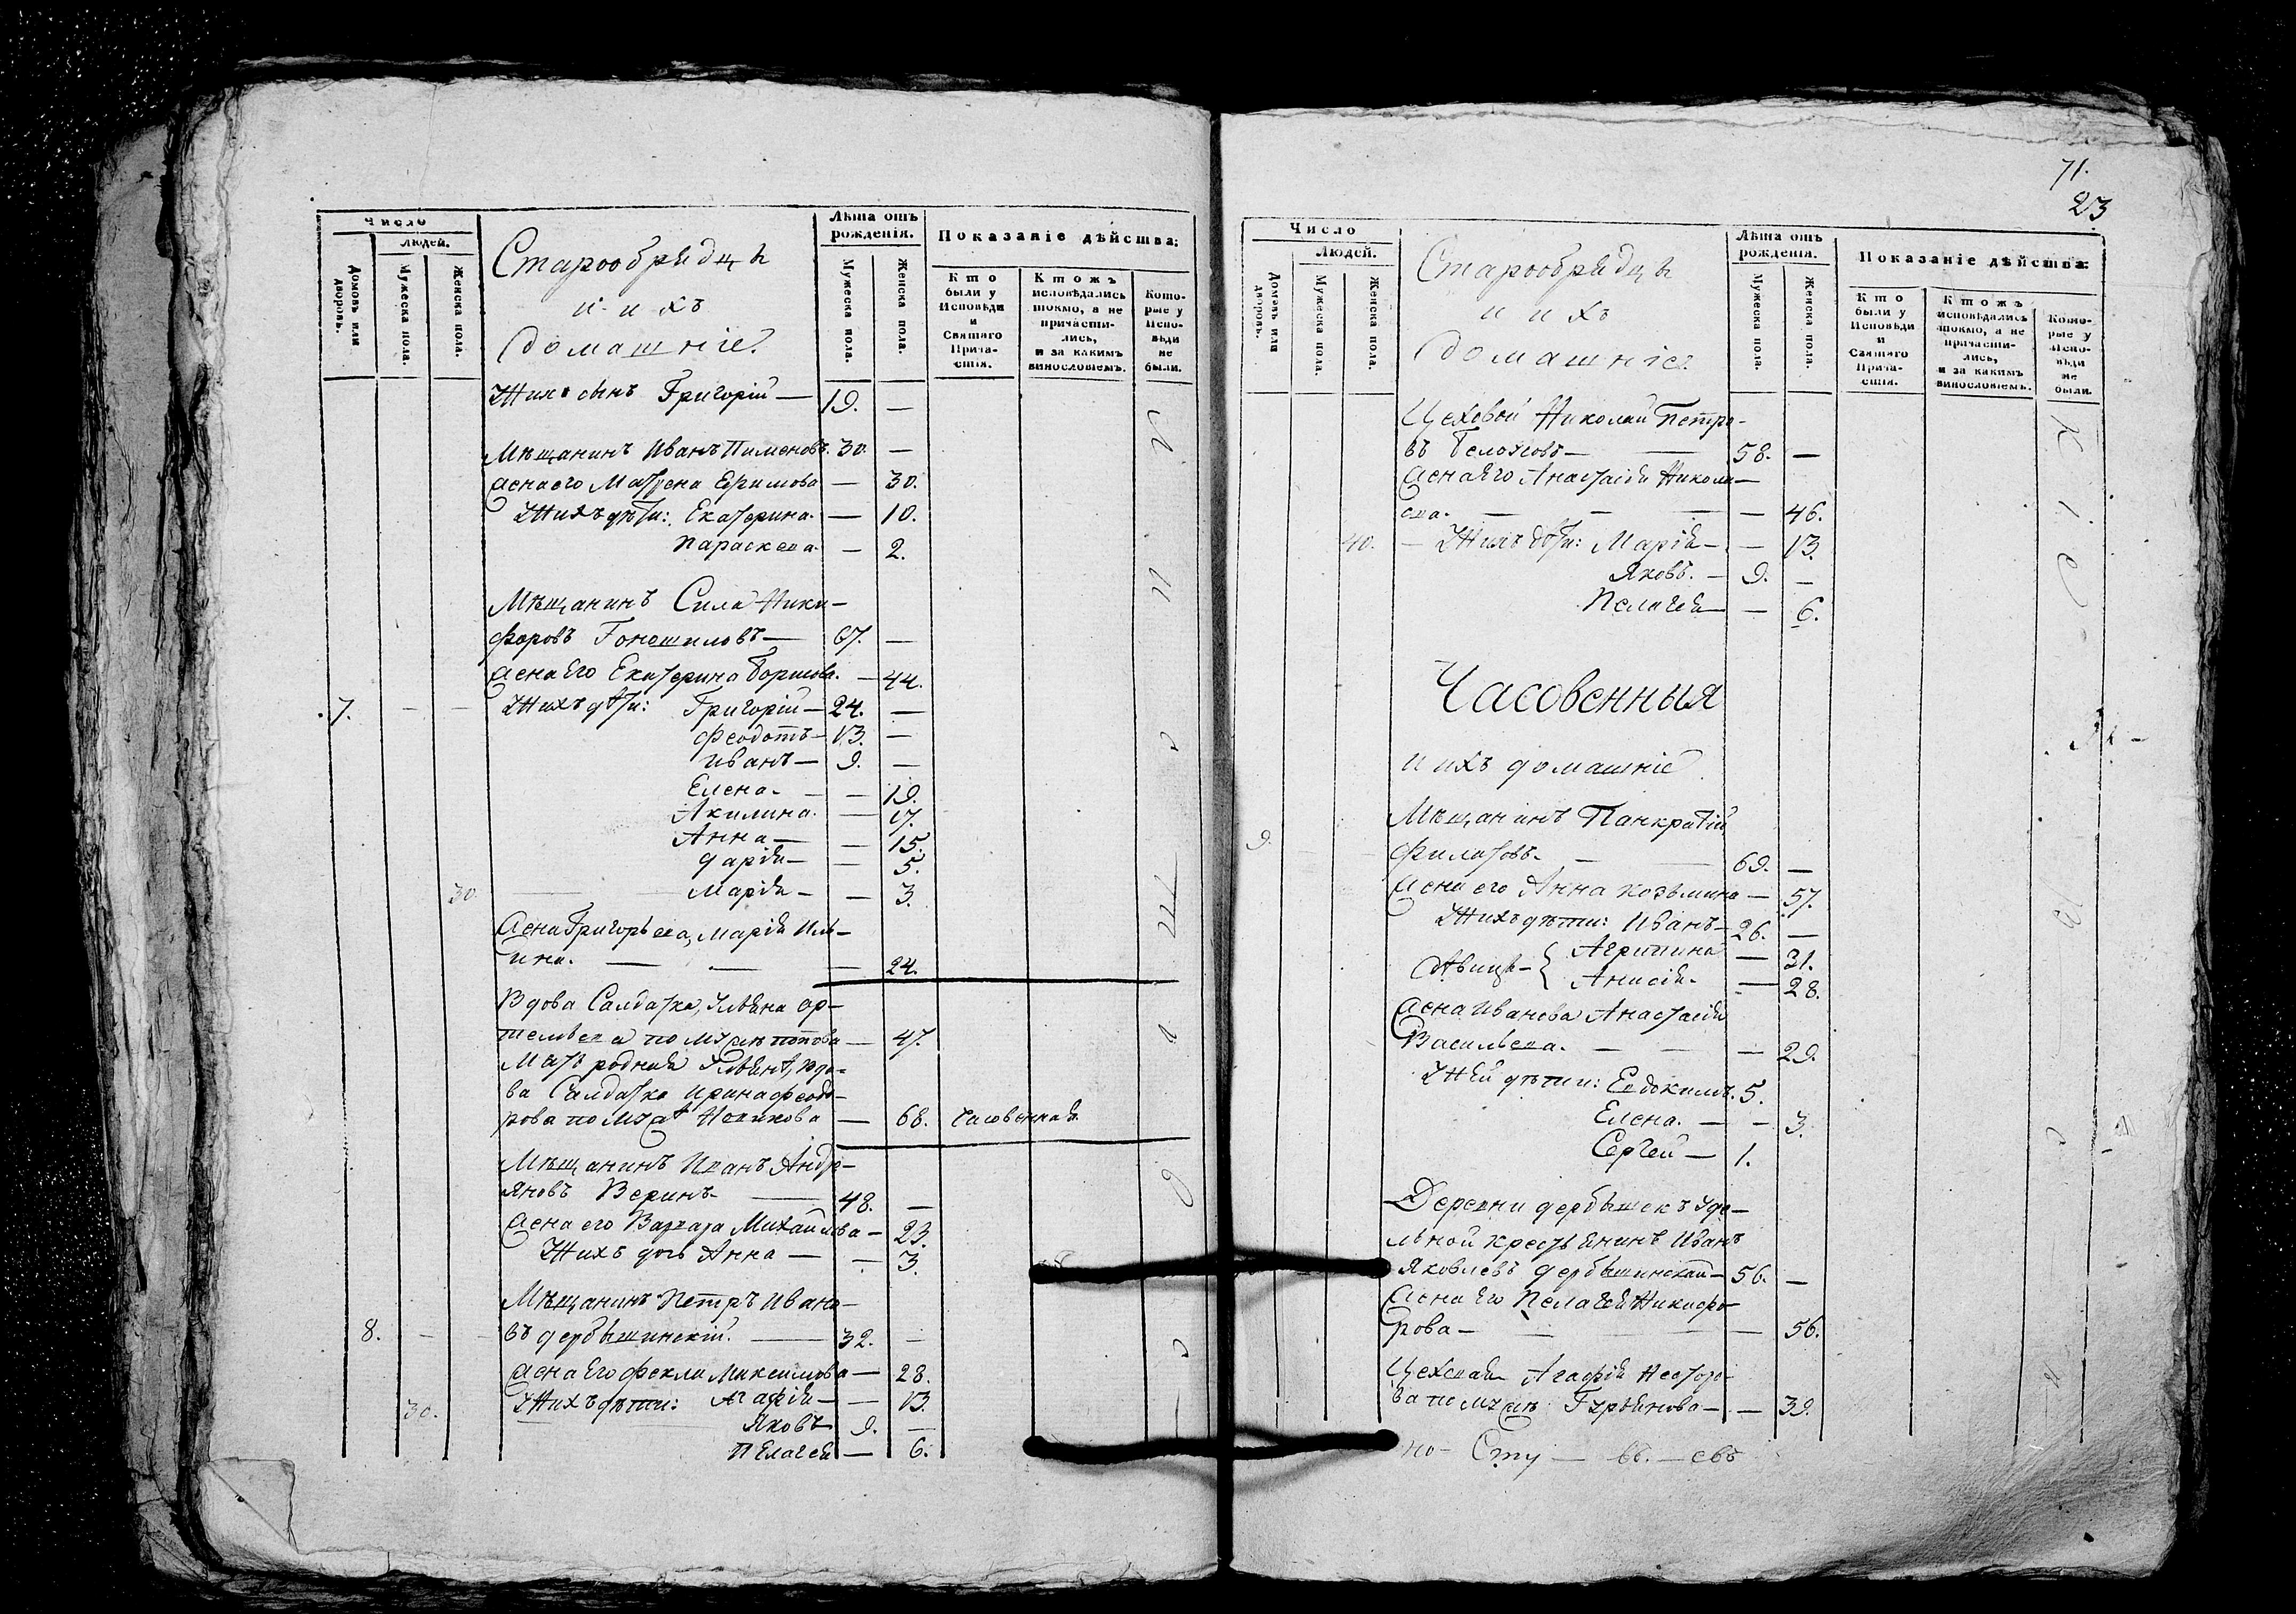 Число
Людей.
Домовъ или дворовъ.
Мужеска пола.
Женска пола.
Старообрядцы
и ихъ
домашніе.
Лѣта отъ рожденія.
Мужеска пола.
Женска пола.
Показаніе дѣйства:
Кто были у Исповѣди и Святаго Прича-стія.
Ктожъ исповѣдались токмо, а не причасти-лись, и за какимъ винословіемъ.
Кото-рые у Испо-вѣди не были.
Ихъ сынъ Григорій — 19. —
Мѣщанинъ Иванъ Пименовъ. 30. —
Жена его Матрена Ефимова — 30.
У нихъ дѣти: Екатерина. — 10.
Параскева. — 2.
Мѣщанинъ Сила Ники-
форовъ Гоношиловъ — 67. —
Жена Его Екатерина Борисова. — 44.
7. — — У нихъ дѣти: Григорій — 24. —
Феодотъ — 13. —
Иванъ — 9. —
Елена. — — 19.
Акилина. — 17.
Анна — — 15.
Дарья — — 5.
30. Марія — — 3.
Жена Григорьева, Марія Иль-
ина. — — — 24.
Вдова Салдатка, Ульяна Ар-
темьева по мужѣ Попова — 47.
Мать родная Ульяны, вдо-
ва Салдатка Ирина Феодо-
рова по мужѣ Новикова — 68. Часовенная.
Мѣщанинъ Иванъ Андре-
яновъ Веринъ — 48. —
Жена его Варвара Михайлова — 23.
У нихъ дочь Анна — — 3.
Мѣщанинъ Петръ Ивано-
8. — — въ Дербышинскій. — 32. —
Жена Его Фекла Максимова — 28.
30. У нихъ дѣти: Агафія — — 13.
Яковъ — 9. —
Пелагея — 6.
71.
23
Число
Людей.
Домовъ или дворовъ.
Мужеска пола.
Женска пола.
Старообрядцы
и ихъ
домашніе.
Лѣта отъ рожденія.
Мужеска пола.
Женска пола.
Показаніе дѣйства:
Кто были у Исповѣди и Святаго Прича-стія.
Ктожъ исповѣдались токмо, а не причасти-лись, и за какимъ винословіемъ.
Кото-рые у Испо-вѣди не были.
Цеховой Николай Петро-
въ — — 58. —
Жена Его Анастасія Никола-
ева. — — — — 46.
40. — У нихъ дѣти: Марія — — 13.
Яковъ. — 9. —
Пелагея — — 6.
Часовенныя
и ихъ домашніе
Мѣщанинъ Панкратій
9. Филатовъ. — — 69. —
Жена его Анна Козьмина — 57.
У нихъ дѣти: Иванъ — 26. —
Дѣвицы — { Агрипина — 31.
Анисія. — 28.
Жена Иванова Анастасія
Васильева. — — — 29.
У ней дѣти: Евдокимъ. 5.
Елена. — — 3.
Сергей — 1.
Деревни Дербышекъ удѣ-
льной крестьянинъ Иванъ
Яковлевъ Дербышинскій — 56. —
Жена Его Пелагея Никифо-
рова — — — — 56.
Цеховая Агафія Несторо-
ва по мужѣ — — 39.
по — Сту — въ. — евъ